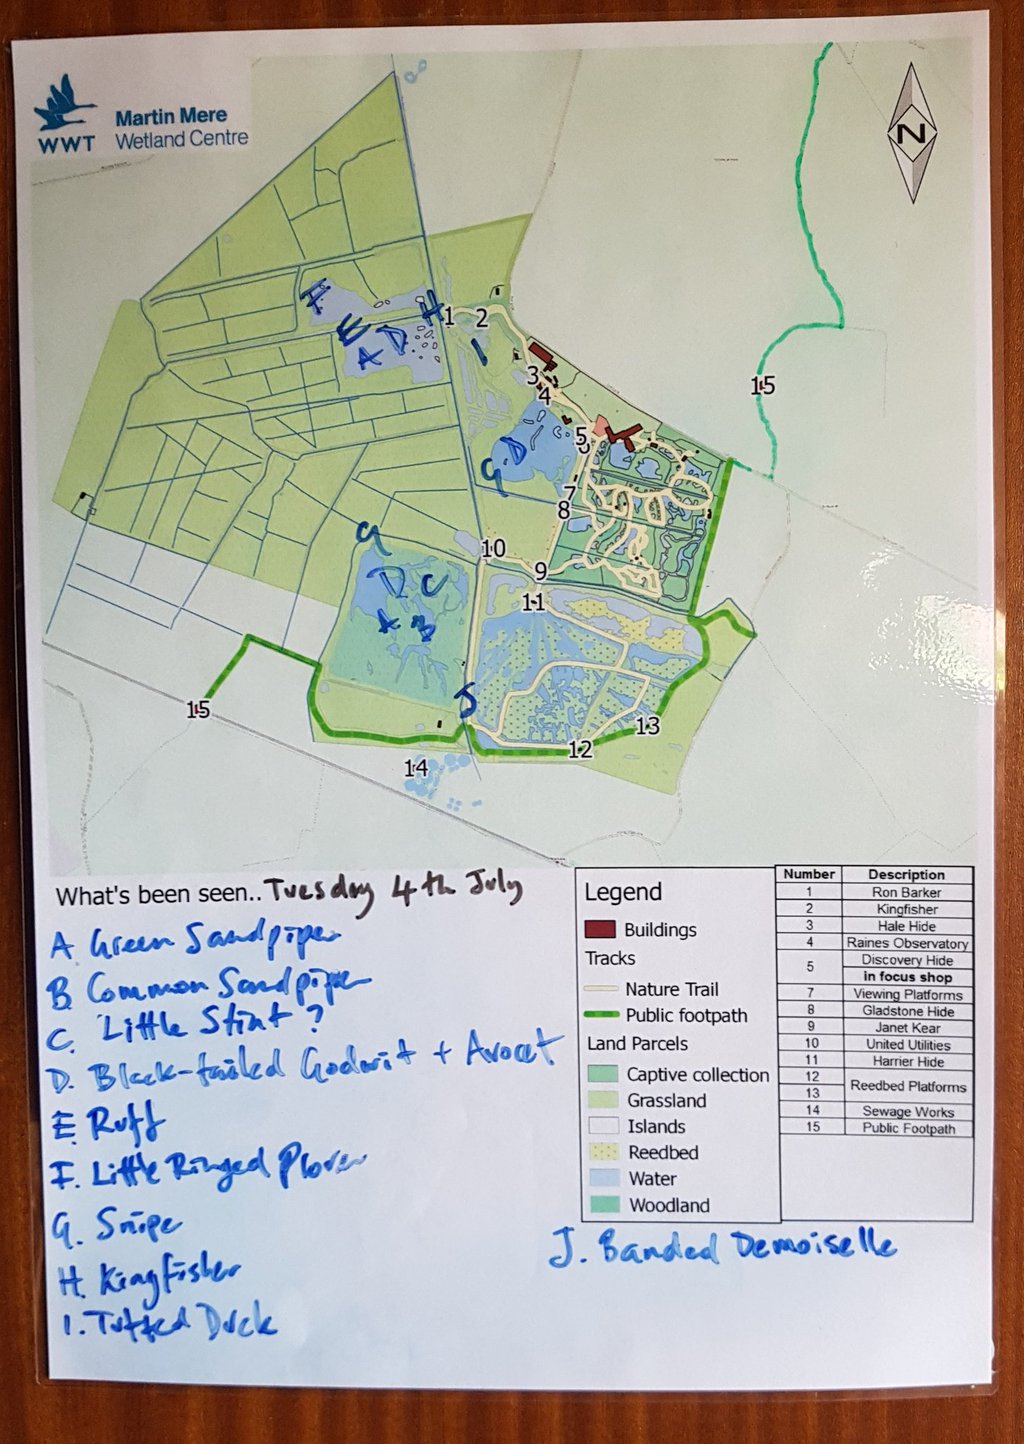 WWT
Martin Mere
Wetland Centre
N
F
E
A
D
H
1
2
1
3
4
5
6
15
G
D
7
8
G
10
9
11
D
C
A
B
J
15
13
12
14
What's been seen.. Tuesday 4th July
A Green Sandpiper
B. Common Sandpiper
C. Little Stint?
D. Black-tailed Godwit + Avocet
E. Ruff
F. Little Ringed Plover
G. Snipe
H. Kingfisher
I. Tufted Duck
J. Banded Demoiselle
Legend
Buildings
Tracks
Nature Trail
Public footpath
Land Parcels
Captive collection
Grassland
Islands
Reedbed
Water
Woodland
Number Description
1 Ron Barker
2 Kingfisher
3 Hale Hide
4 Raines Observatory
5 Discovery Hide
in focus shop
7 Viewing Platforms
8 Gladstone Hide
9 Janet Kear
10 United Utilities
11 Harrier Hide
12 Reedbed Platforms
13
14 Sewage Works
15 Public Footpath